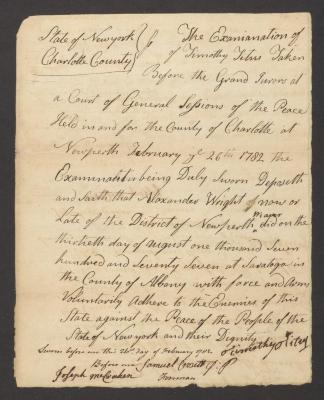 State of Newyork } ss The Examanation of
Charlotte County } of Timothy Titus Taken
Before the Grand Jurors at
a Court of General Sessions of the Peace
Held in and for the County of Charlotte at
Newperth February ye 26th 1782 the
Examinate being Duly Sworn Deposeth
and saith that Alexander Wright of now or
Late of the District of Newperth did on the
thirtieth day of august one thousand Seven
hundred and Seventy Seven at Saratoga in
the County of Albany with force and Arms
Voluntarily Adhere to the Enemies of this
State against the Peace of the People of the
State of Newyork and their Dignity
Timothy Titus
Sworn before me this 26th day of February 1782
Before me Samuel Crouth
Joseph McCracken Foreman